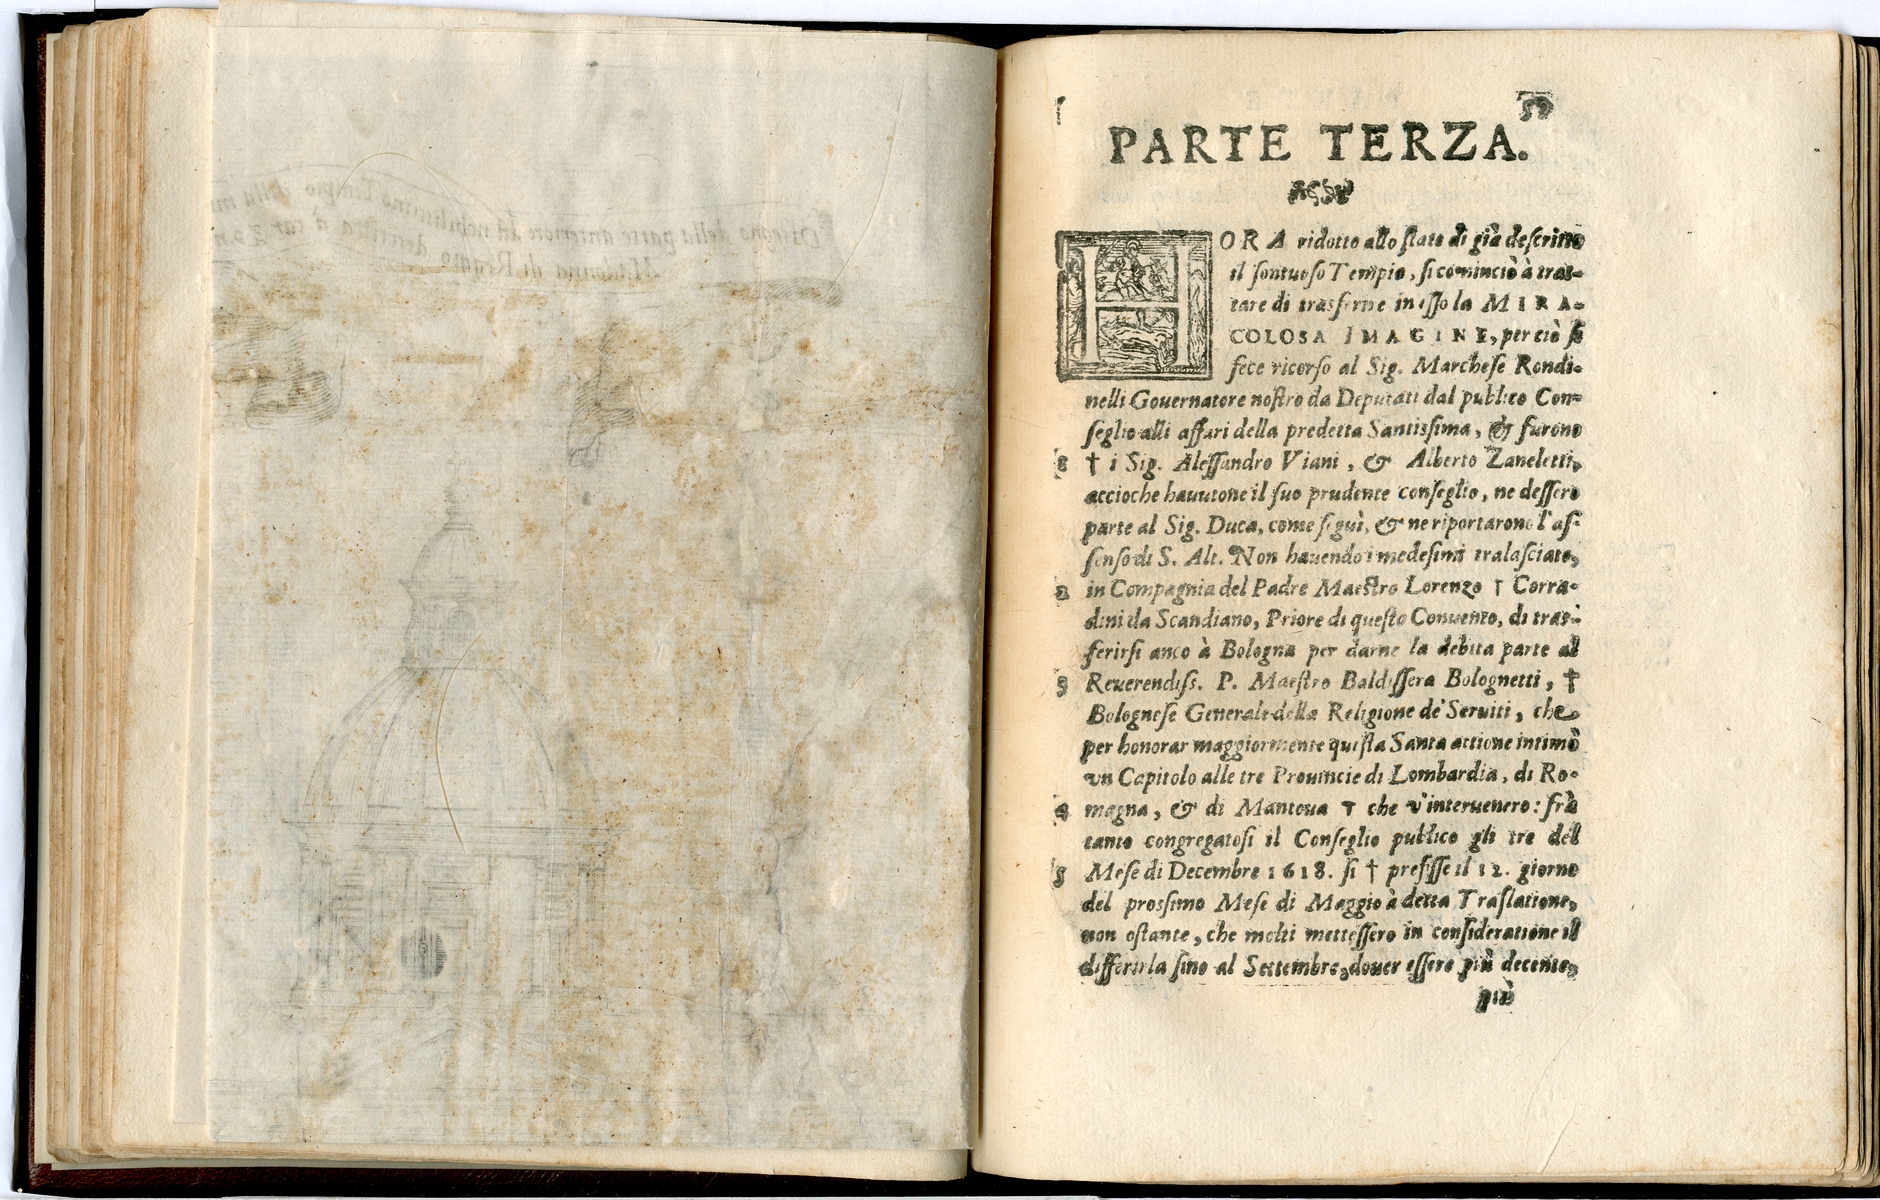 Disegno della parte anteriore del nobilissimo Tempio della
Madonna di Reggio descritta à car.
PARTE TERZA.
HORA ridotto allo stato di già descritto
il sontuoso Tempio, si cominciò à trat-
tare di trasferire in esso la MIRA-
COLOSA IMAGINE, per ciò si
fece ricorso al Sig. Marchese Rondi-
nelli Gouernatore nostro da Deputati dal publico Con-
seglio alli affari della predetta Santissima, & furono
† i Sig. Alessandro Viani, & Alberto Zaneletti,
accioche hauutone il suo prudente conseglio, ne dessero
parte al Sig. Duca, come seguì, & ne riportarono l'as-
senso di S. Alt. Non hauendo i medesimi tralasciato,
2 in Compagnia del Padre Maestro Lorenzo † Corra-
dini da Scandiano, Priore di questo Conuento, di tras-
ferirsi anco à Bologna per darne la debita parte al
3 Reuerendiss. P. Maestro Baldissera Bolognetti, †
Bolognese Generale della Religione de' Seruiti, che
per honorar maggiormente questa Santa attione intimò
vn Capitolo alle tre Prouincie di Lombardia, di Ro-
4 magna, & di Mantoua † che v'interuenero: frà
tanto congregatosi il Conseglio publico gli tre del
5 Mese di Decembre 1618. si † prefisse il 12. giorno
del prossimo Mese di Maggio à detta Traslatione,
non ostante, che molti mettessero in consideratione il
differirla sino al Settembre, douer essere più decente,
più